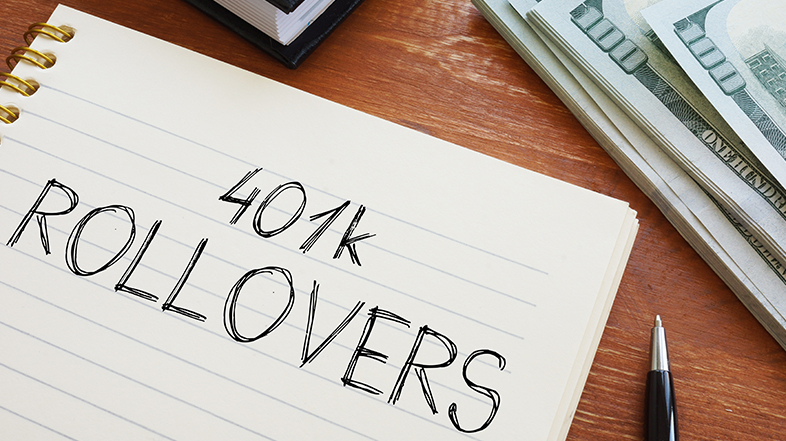 401k
ROLLOVERS
100
100
ONE HUNDRED